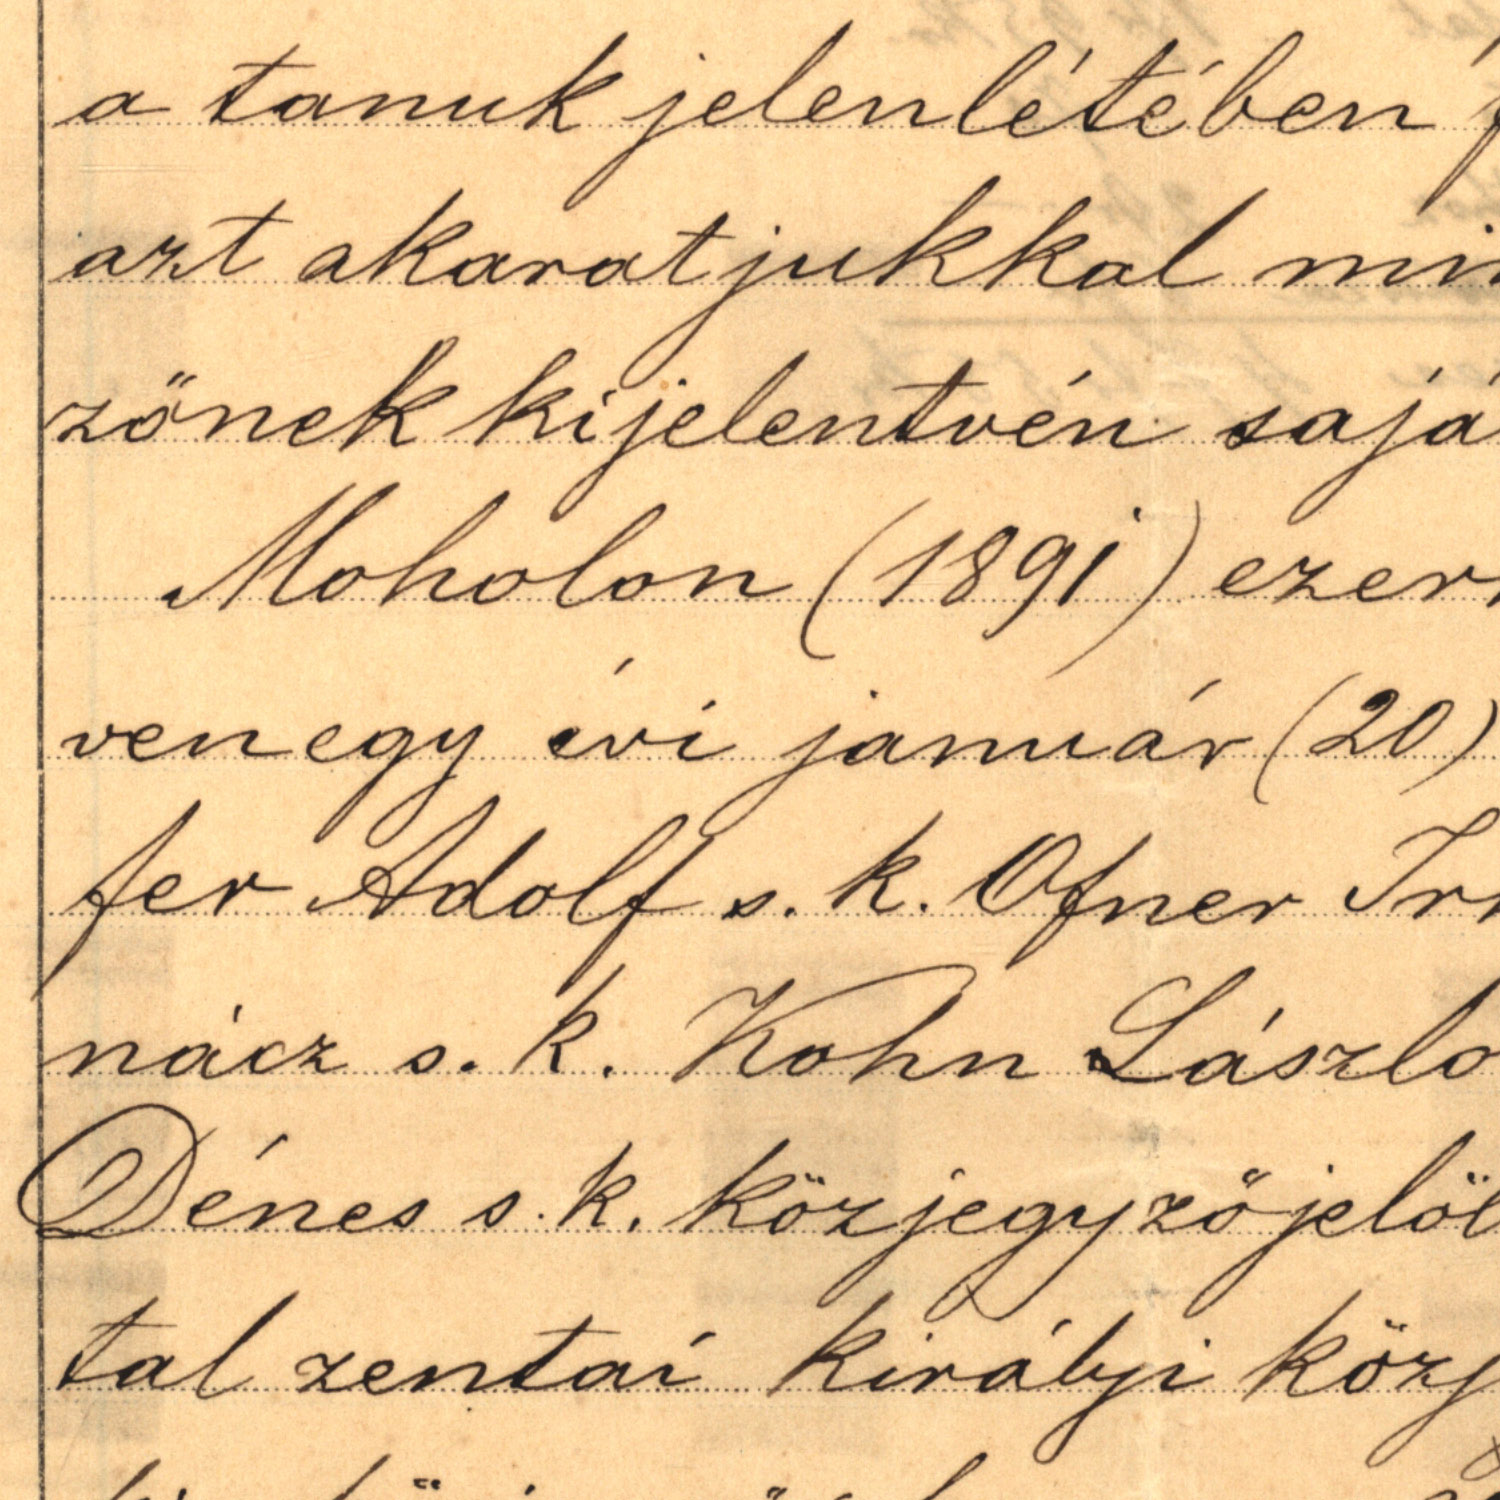 a tanuk jelenlétében
azt akaratjukkal
zőnek kijelentvén
Moholon (1891)
venegy évi január (20)
fer Adolf s. k. Ofner
nácz s. k. Kohn László
Dénes s. k. közjegyzőjelöl
tal zentai királyi közj